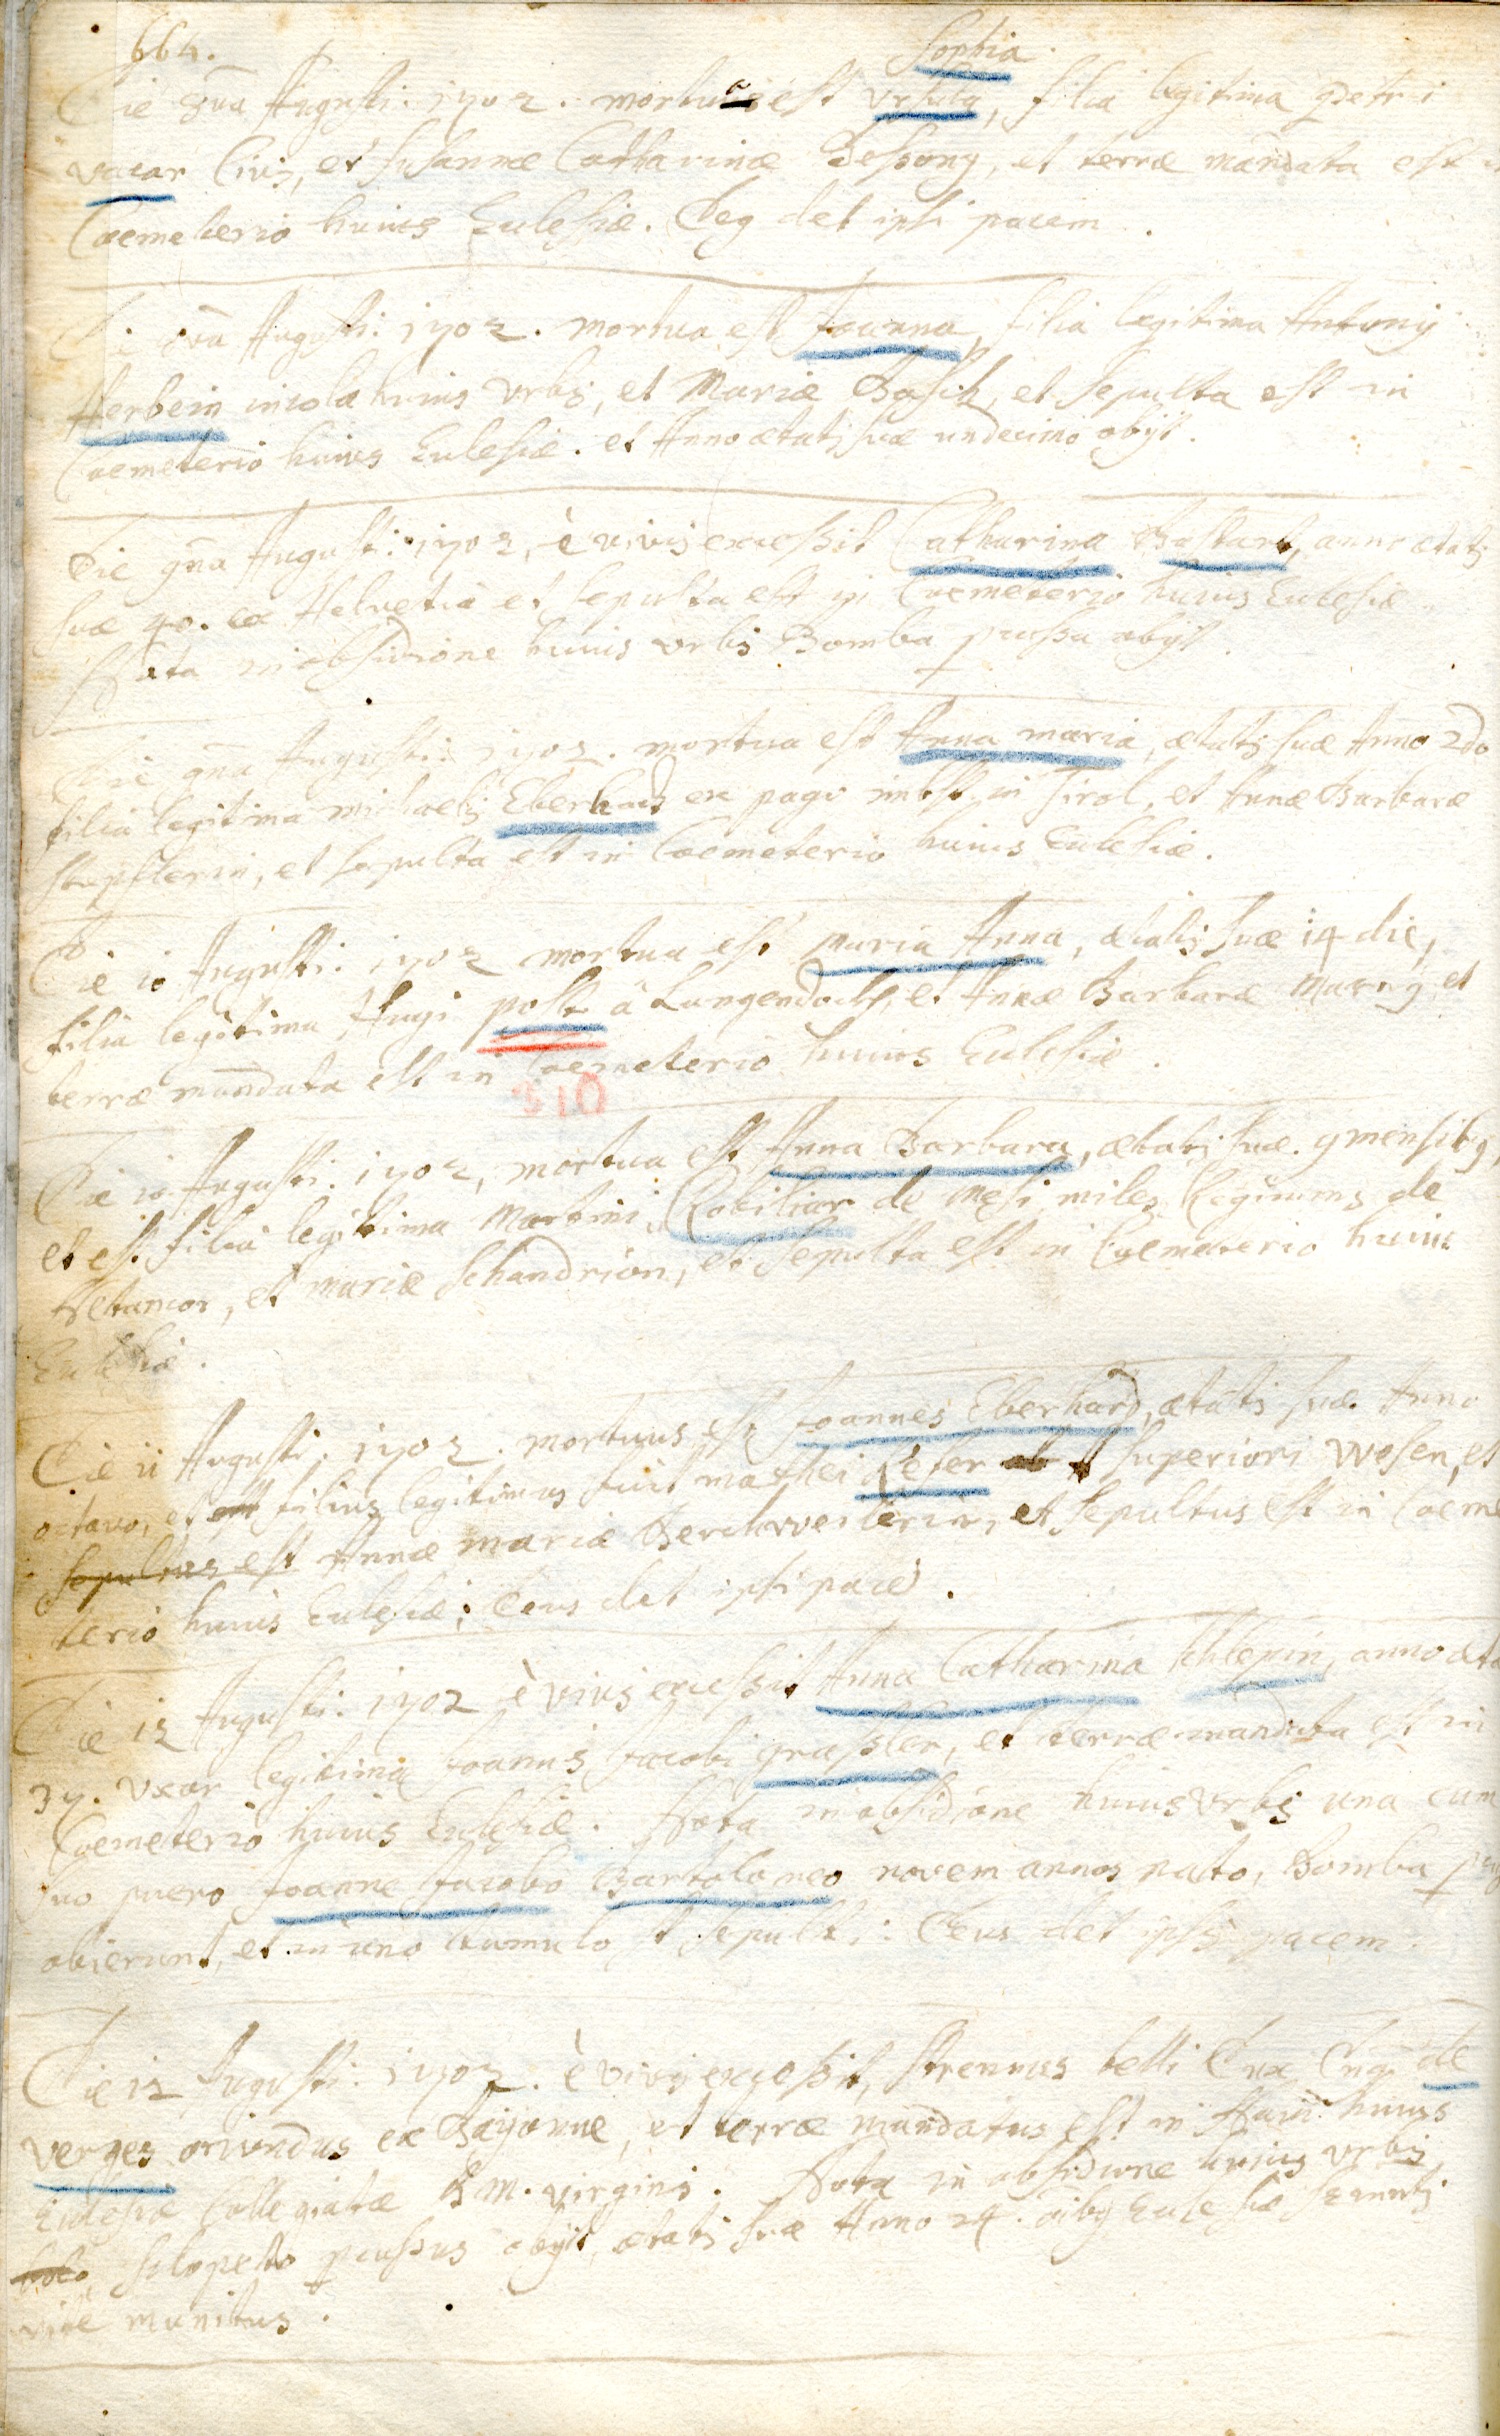 664.
Sophia
Die Augusti: 1702. mortua est Ursula, filia legitima Petri
vacar Civis, et Susannæ Catharinæ Dessong, et terræ mandata est
Coemeterio huius Ecclesiæ. Deg det ipsi pacem.
Augusti: 1702. mortua est Joanna, filia legitima Antonij
Herbein incolæ huius Urbis, et Mariæ et sepulta est in
Coemeterio huius Ecclesiæ. et Anno ætatis suæ undecimo obijt.
Die 9na Augusti: 1702, è vivis excessit Catharina Bastart, anno ætatis
suæ 40. ex Helvetia et sepulta est in Coemeterio huius Ecclesiæ.
Nota in obsidione huius Urbis Bomba percussa obijt.
Die 9na Augusti: 1702. mortua est Anna maria, ætatis suæ Anno 2do
filia legitima michaelis Eberhard ex pago imbst in Tirol, et Annæ Barbaræ
et sepulta est in Coemeterio huius Ecclesiæ.
Die 10 Augusti: 1702 mortua est maria Anna, ætatis suæ 14 die,
filia legitima Hugi polst à Langendorff, et Annæ Barbaræ Marng et
terræ mandata est in Coemeterio huius Ecclesiæ.
310
Die 10 Augusti: 1702, mortua est Anna Barbara, ætatis suæ. 9 mensibg,
et est filia legitima Martini Robiliar de Mesi miles Regiminis de
et mariæ Schandrion, et sepulta est in Coemeterio huius
Ecclesiæ.
Die 11 Augusti: 1702. mortuus est Joannes Eberhard, ætatis suæ Anno
octavo, et est filius legitimus fuit mathei deter superiori Wesen, et
sepultus est Annæ mariæ Berchweilerin, et sepultus est in Coeme
terio huius Ecclesiæ; Deus det ipsi pacē.
Die 12 Augusti: 1702 è vivis excessit Anna Catharina Schlepin, anno æta
37. Uxor legitima Joannis Jacobi grassler, et terræ mandata est in
Coemeterio huius Ecclesiæ. Nota in obsidione huius Urbis una cum
suo puero Joanne Jacobo Bartolomeo novem annos nato, Bomba
obierunt, et in uno tumulo sepulti: Deus det ipsis pacem.
Die 12 Augusti: 1702. è vivis excessit, strennus belli Dux Dng de
verges oriundus ex Bayonne, et terræ mandatus est in Navi huius
Ecclesiæ Collegiatæ B M. virginis. Nota in obsidione huius Urbis
sclopeto percussus obijt, ætatis suæ Anno 24. oībg Ecclesiæ
ritè munitus.